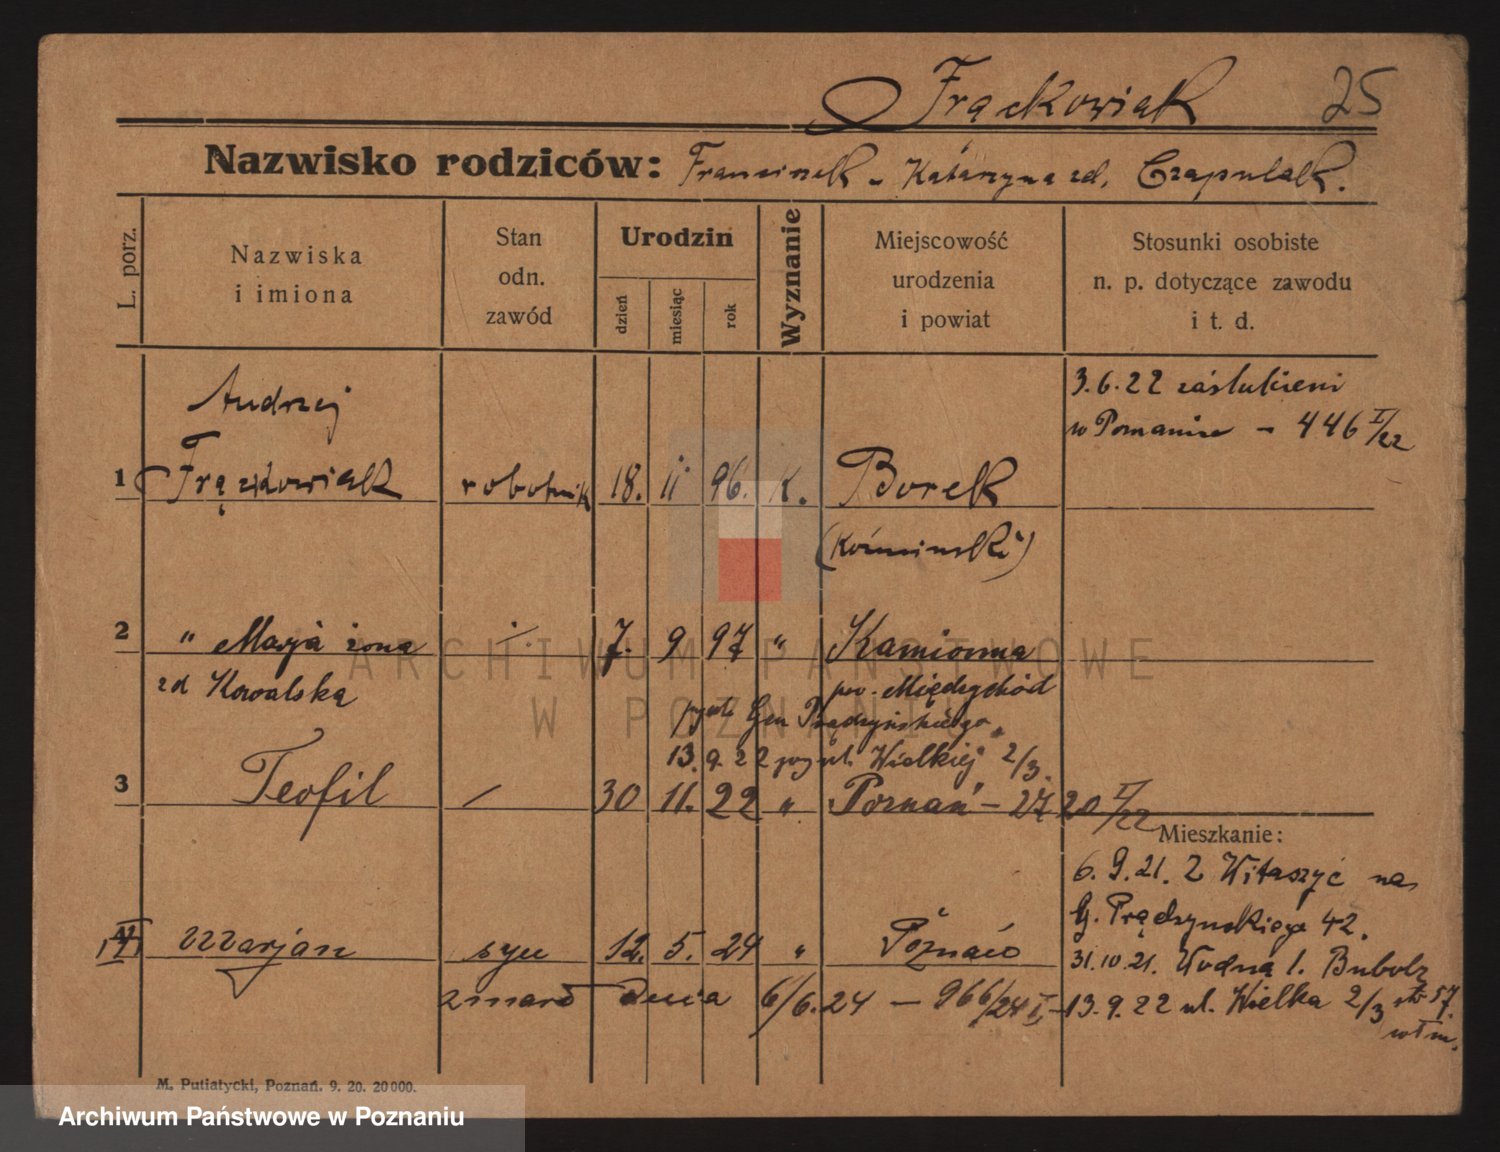 Frąckowiak 25
Nazwisko rodziców: Franciszek - Katarzyna zd. Czapulak.
L. porz.
Nazwiska
i imiona
Stan
odn.
zawód
Urodzin
dzień
miesiąc
rok
Wyznanie
Miejscowość
urodzenia
i powiat
Stosunki osobiste
n. p. dotyczące zawodu
i t. d.
3.6.22 zaślubieni
w Poznaniu - 446 I/22
Andrzej
1 Frąckowiak robotnik 18. 11 96. K. Borek
(Koźmiński)
2 " Marja żona 7. 9 97 " Kamionna
zd Kowalska pow. Międzychód
Gen Prądzyńskiego
13.9.22 ul. Wielkiej 2/3.
3 Teofil / 30 11. 22 " Poznań - 2720 I/22
Mieszkanie:
6.9.21. Z Witaszyc na
G. Prądzynskiego 42.
Marjan syn 12. 5. 24 " Poznań
31.10.21. Wodna 1. Bubolz
zmarł dnia 6/6.24 - 966/24 I,
13.9.22 ul. Wielka 2/3
M. Putiatycki, Poznań. 9. 20. 20000.
ARCHIWUM PAŃSTWOWE
W POZNANIU
Archiwum Państwowe w Poznaniu